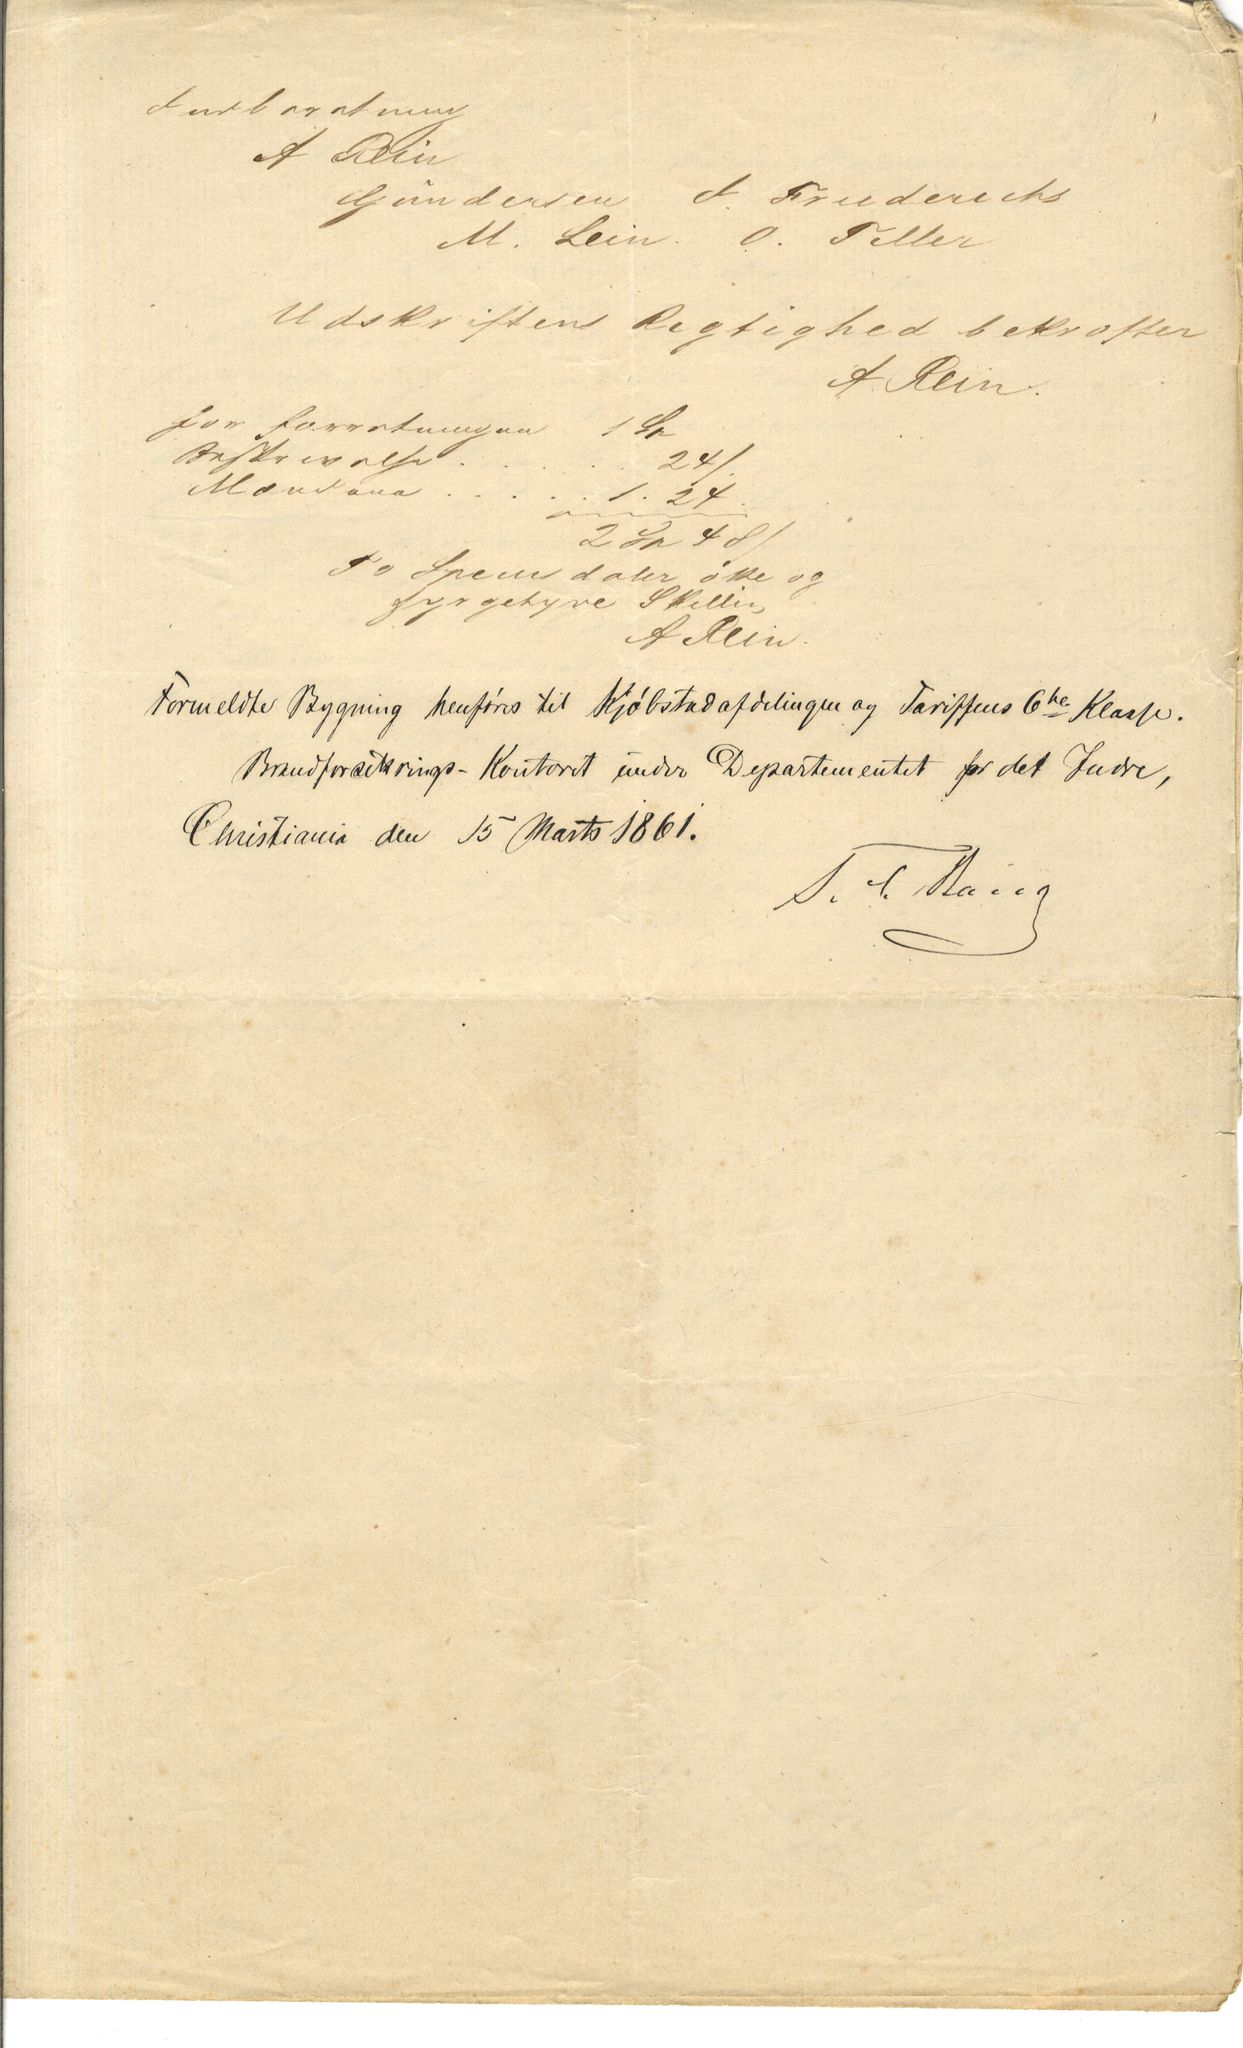 A Rein
Gündersen F. Friederichs
M. Lein. O. Tiller
Udskriftens Rigtighed bekræfter
A. Rein.
for forretningen 1 Sp
Beskrivelse . . . . . . 24 /.
Mændene . . . . . 1. 24.
2 Sp 48 /
To Speciesdaler otte og
fyrgetyve Skilling
A Rein.
Formeldte Bygning henføres til Kjøbstadafdelingen og Tariffens 6te Klasse.
Brandforsikrings-Kontoret under Departementet for det Indre,
Christiania den 15 Marts 1861.